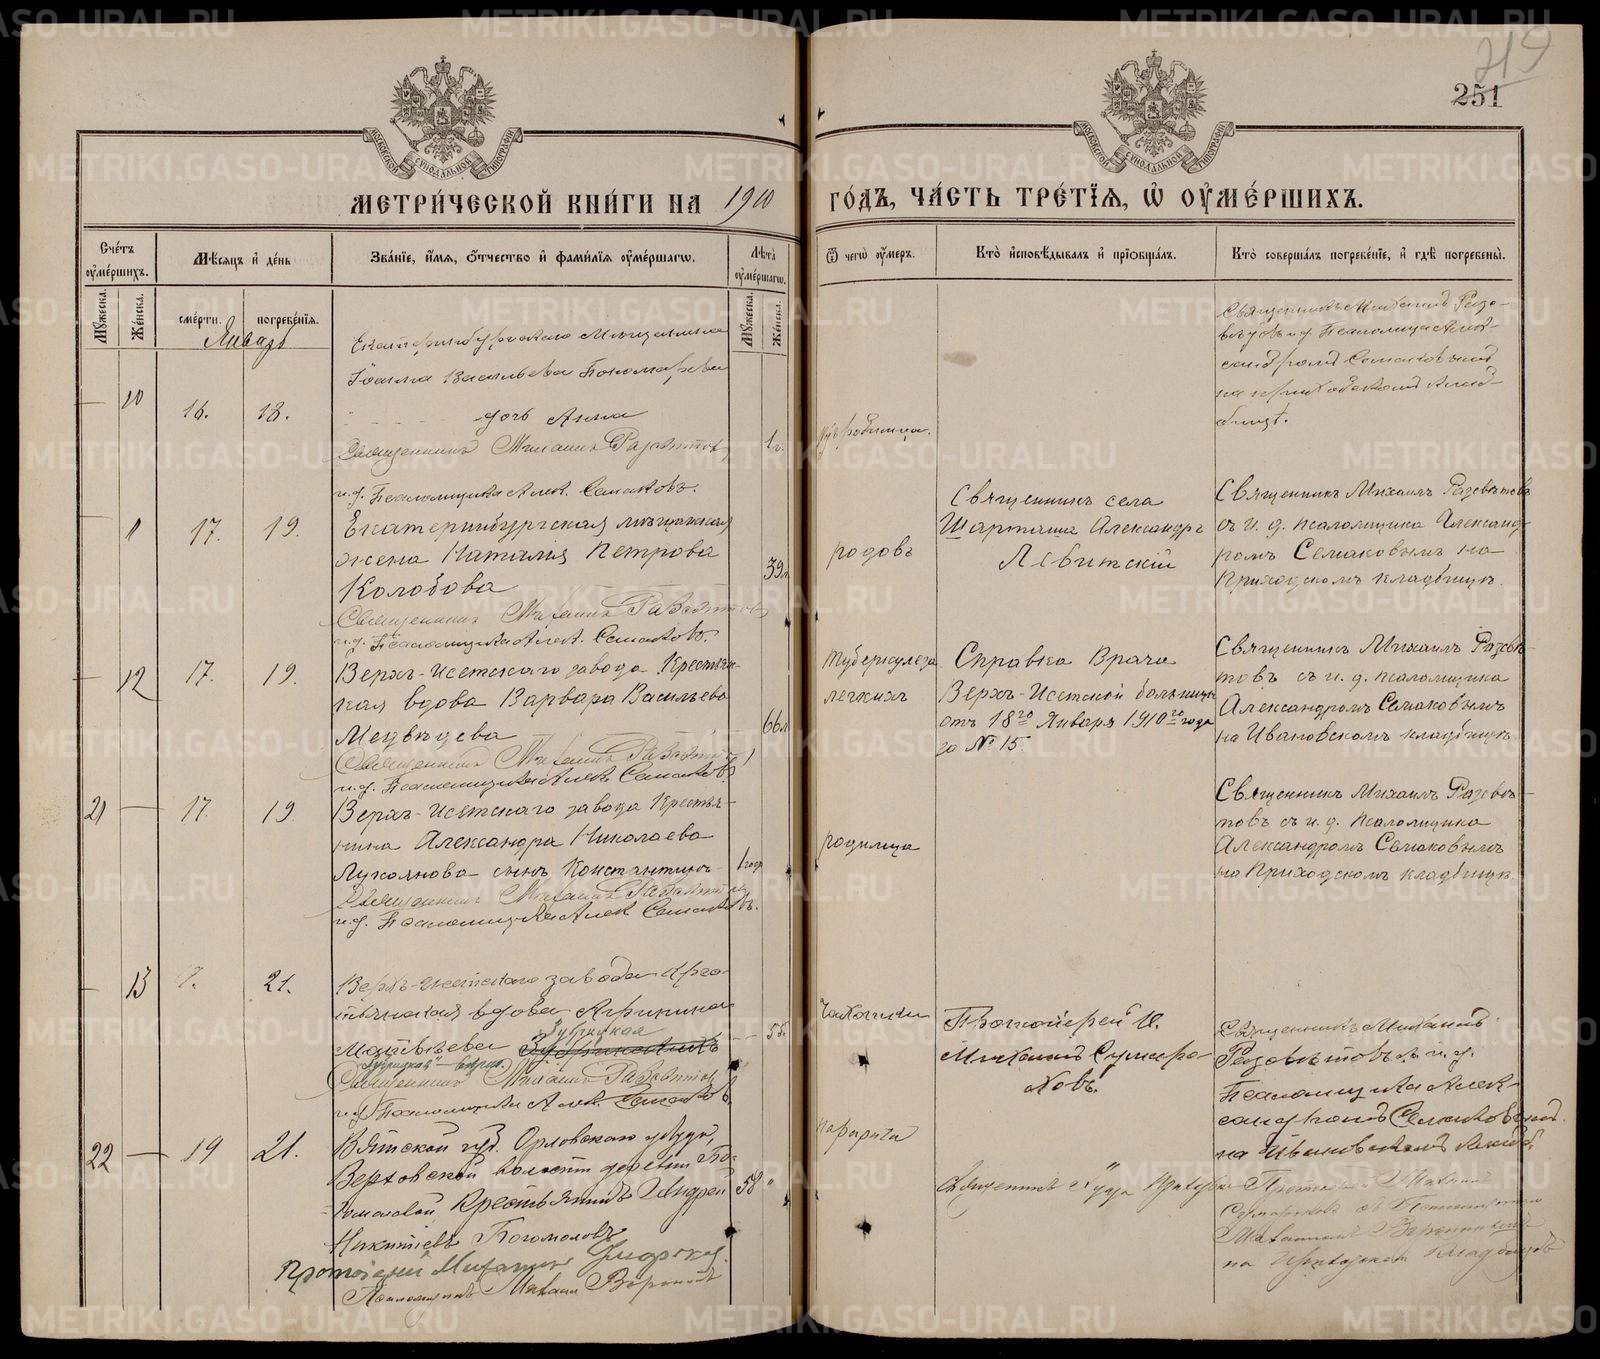 219
251
МЕТРИ́ЧЕСКОЙ КНИ́ГИ НА 1910 ГО́ДЪ, ЧА́СТЬ ТРЕ́ТIѦ, Ѡ ОУ҆МЕ́РШИХЪ.
Сче́тъ оу҆ме́ршихъ.
Мѣ́сѧцъ и҆ де́нь
Зва́нїе, и҆́мѧ, ѻ҆́тчество и҆ фами́лїѧ оу҆ме́ршагѡ.
Лѣ́та оу҆ме́ршагѡ.
Ѿ чегѡ̀ оу҆́меръ.
Кто̀ и҆сповѣ́дывалъ и҆ прїѡбща́лъ.
Кто̀ соверша́лъ погребе́нїе, и҆ гдѣ̀ погребены̀.
Мꙋ́жеска.
Же́нска.
сме́рти.
погребе́нїѧ.
Мꙋ́жеска.
Же́нска.
Январь
Екатеринбургскаго Мѣщанина
Іоанна Васильева Пономарева
10 16. 18. дочь Анна 1 г.
Священникъ Михаилъ Разсвѣтовъ
и.д. Псаломщика Алек. Семаковъ.
Священникъ Михаилъ Разс-
вѣтовъ и.д. Псаломщика Алек-
сандромъ Семаковымъ
на приходскомъ клад-
бищѣ.
11 17. 19. Екатеринбургская мѣщанская
жена Наталія Петрова
Колобова 39 л.
Священникъ Михаилъ Разсвѣтовъ
и.д. Псаломщика Алек. Семаковъ.
родовъ
Священникъ села
Шарташа Александръ
Левитскій
Священникъ Михаилъ Разсвѣтовъ
съ и. д. псаломщика Александ-
ромъ Семаковымъ на
Приходскомъ кладбищѣ.
12 17. 19. Верхъ-Исетскаго завода Крестьян-
ская вдова Варвара Васильева
Медвѣдева 66 л.
Священникъ Михаилъ Разсвѣтовъ
и.д. Псаломщика Алек. Семаковъ
туберкулеза
легкихъ
Справка Врача
Верхъ-Исетской больницы
отъ 18го Января 1910го года
за № 15.
Священникъ Михаилъ Разсвѣ-
товъ съ и. д. псаломщика
Александромъ Семаковымъ
на Ивановскомъ кладбищѣ
21 17. 19. Верхъ-Исетскаго завода Крестья-
нина Александра Николаева
Лукоянова сынъ Константинъ 1 годъ
Священникъ Михаилъ Разсвѣтовъ
и.д. Псаломщика Алек. Семаковъ.
родимца
Священникъ Михаилъ Разсвѣ-
товъ съ и. д. псаломщика
Александромъ Семаковымъ
на Приходскомъ кладбищѣ
13 21. Верхъ-Исетскаго завода Крес-
тьянская вдова Агрипина
Матвѣева
Священникъ Михаилъ Разсвѣтовъ
и.д. Псаломщика Алек. Семаковъ.
чахотки
Протоіерей
Михаилъ
Священникъ Михаилъ
Разсвѣтовъ съ и.д.
Псаломщика Алек-
сандромъ Семаковымъ
на Ивановскомъ кладб.
22 19 21. Вятской губ. Орловскаго уѣзда,
Верховской волости деревни
Крестьянинъ Андрей
Никитіевъ Богомоловъ 58
Протоіерей Михаилъ
Псаломщикъ
паралича
Священникъ
Протоіерей
на Приходскомъ кладбищѣ